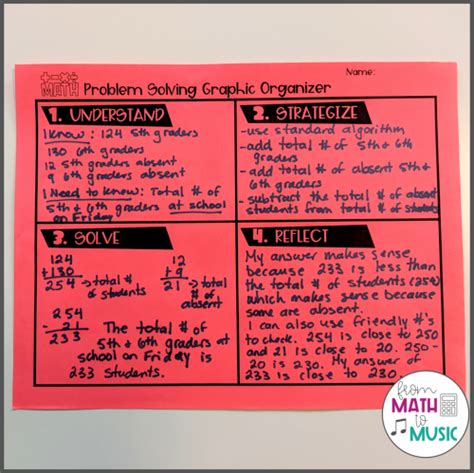 Name:
MATH Problem Solving Graphic Organizer
1. UNDERSTAND
I know: 124 5th graders
130 6th graders
12 5th graders absent
9 6th graders absent
I Need to Know: Total # of
5th & 6th graders at school
on Friday
2. STRATEGIZE
-use standard algorithm
-add total # of 5th & 6th
graders
- add total # of absent 5th &
6th graders
- subtract the total # of absent
students from total # of students
3. SOLVE
124
+130
254 → total # of students
12
+ 9
21 → total # of absent
254
- 21
233
The total # of
5th & 6th graders at
school on Friday is
233 students.
4. REFLECT
My answer makes sense
because 233 is less than
the total # of students (254)
which makes sense because
some are absent.
I can also use friendly #'s
to check. 254 is close to 250
and 21 is close to 20. 250-
20 is 230. My answer of
233 is close to 230.
from
MATH
to
MUSIC